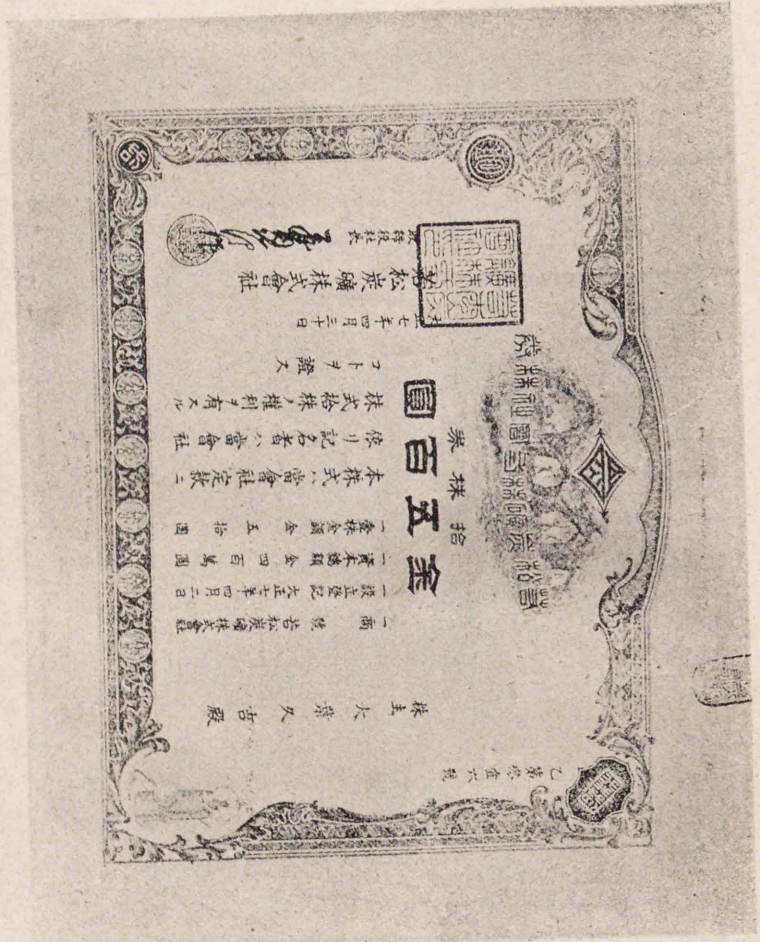 若松炭礦株式會社株券
拾株券
金五百圓
乙第零壹六號
株主 大葉久吉殿
一商號 若松炭礦株式會社
一設立登記 大正七年四月二日
一資本總額 金四百萬圓
一壹株金額 金五拾圓
本株式ハ當會社定款ニ
依リ記名者ハ當會社
株式拾株ノ權利ヲ有スル
コトヲ證ス
大正七年四月三十日
若松炭礦株式會社
取締役社長